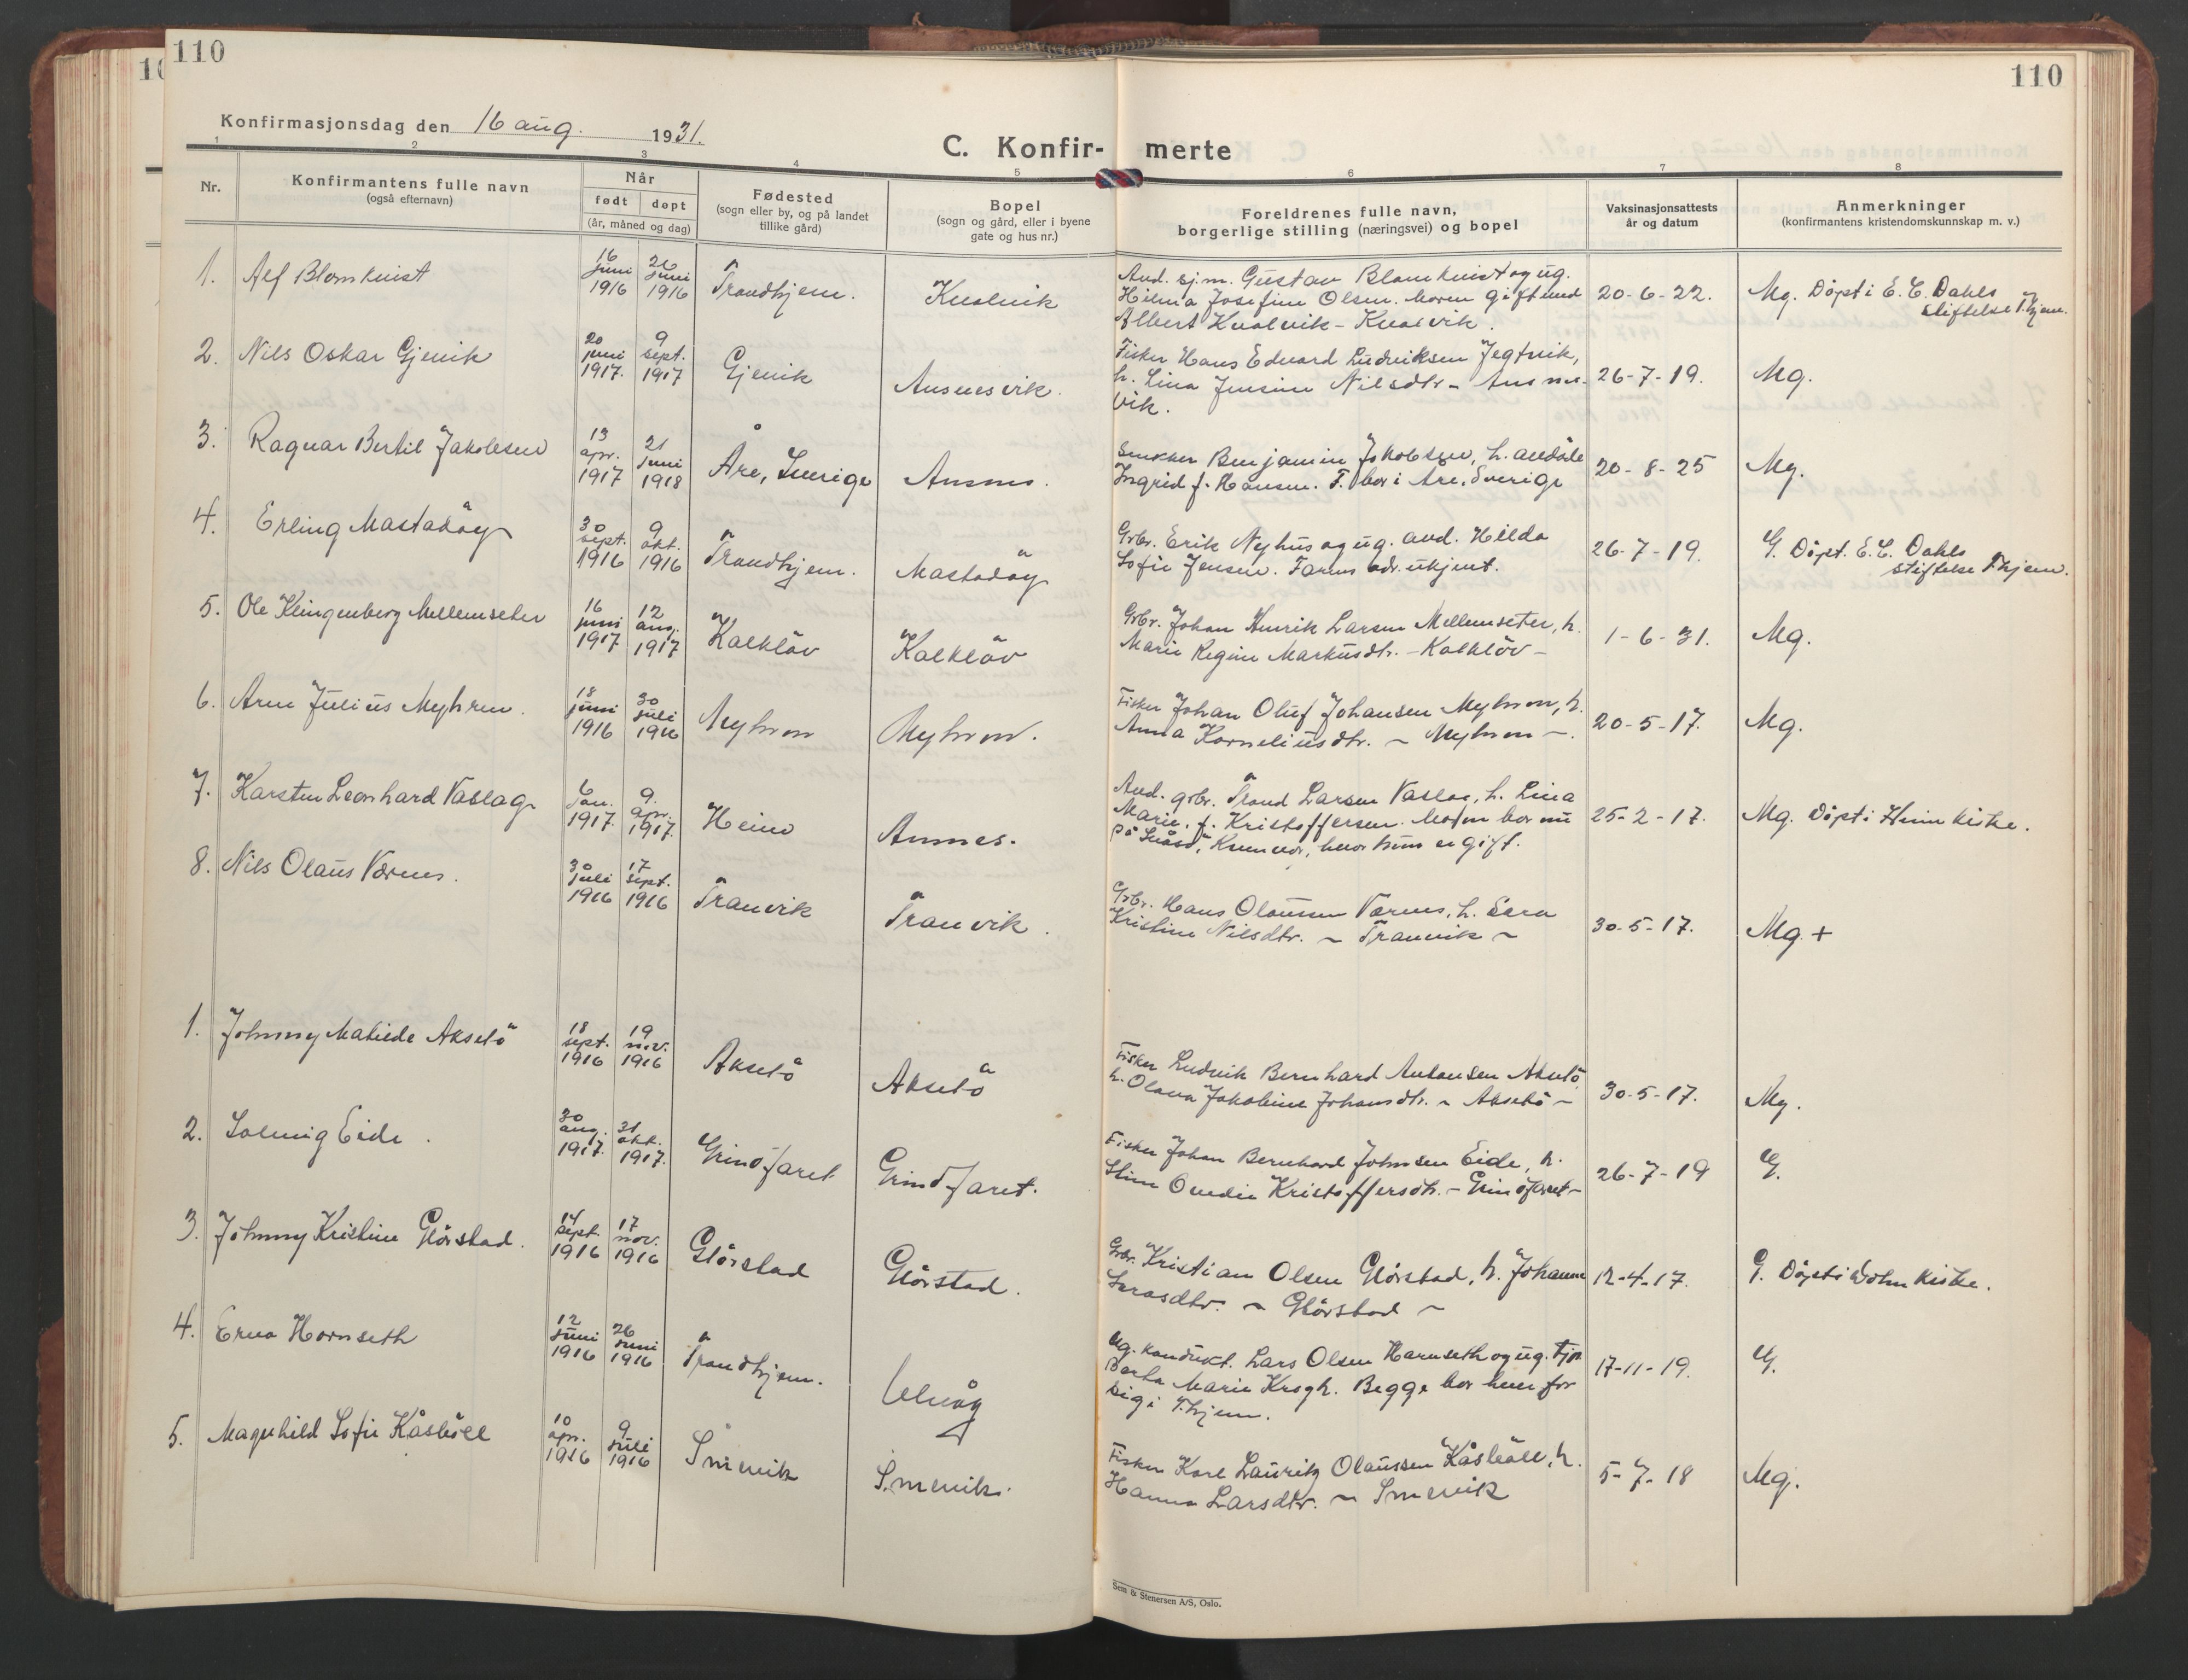 110
110
Konfirmasjonsdag den 16 aug. 1931.
C. Konfir- merte
1 2 3 4 5 6 7 8
Nr.
Konfirmantens fulle navn
(også efternavn)
Når
født døpt
(år, måned og dag)
Fødested
(sogn eller by, og på landet
tillike gård)
Bopel
(sogn og gård, eller i byene
gate og hus nr.)
Foreldrenes fulle navn,
borgerlige stilling (næringsvei) og bopel
Vaksinasjonsattests
år og datum
Anmerkninger
(konfirmantens kristendomskunnskap m. v.)
1. Alf Blomkvist
16 juni 1916
26 juni 1916
Trondhjem.
Kvalvik
And. sj.m. Gustav Blomkvist og ug.
Hilma Josefine Olsen. Moren gift med
Albert Kvalvik - Kvalvik.
20-6-22.
Mg. Döpt i E. C. Dahls
stiftelse T.hjem.
2. Nils Oskar Gjevik
20 juni 1917.
9 sept. 1917
Gjevik
Ansnesvik.
Fisker Hans Edvard Ludviksen Jegtvik,
h. Lina Jensine Nilsdtr - Ansnes-
vik.
26-7-19.
Mg.
3. Ragnar Bertil Jakobsen
13 apr. 1917
21 juni 1918
Åre, Sverige
Ansnes.
Snekker Benjamin Jakobsen, h. avdöde
Ingrid f. Hansen. F. bor i Åre, Sverige
20-8-25
Mg.
4. Erling Mastadöy
30 sept. 1916
9 okt. 1916
Trondhjem.
Mastadöy
Grbr. Erik Nyhus og ug. and. Hilda
Sofie Jensen. Farens adr. ukjent.
26-7-19.
G. Döpt. E. C. Dahls
stiftelse T.hjem.
5. Ole Klingenberg Mellemseter
16 juni 1917
12 aug. 1917
Kalklöv
Kalklöv
Grbr. Johan Henrik Larsen Mellemseter, h.
Marie Regine Markusdtr. - Kalklöv -
1-6-31.
Mg.
6. Arne Julius Myhren.
18 juni 1916
30 juli 1916
Myhren
Myhren.
Fisker Johan Oluf Johansen Myhren, h.
Anna Korneliusdtr. - Myhren -.
20-5-17.
Mg.
7. Karsten Leonhard Vaslag
6 jan. 1917.
9. apr. 1917.
Heim
Annes.
And. grbr. Trond Larsen Vaslag, h. Lina
Marie, f. Kristoffersen. Mofen bor nu
på
hvor hun er gift.
25-2-17.
Mg. Döpt i Heim kirke.
8. Nils Olaus Værnes.
30 juli 1916
17 sept. 1916
Tranvik
Tranvik.
Grbr. Hans Olaussen Værnes, h. Sara
Kristine Nilsdtr. - Tranvik -
30-5-17.
Mg. +
1. Johnny Matilde Aksetö
18 sept. 1916
19 nov. 1916
Aksetö
Aksetö
Fisker Ludvik Bernhard Antonsen Aksetö
h. Olava Jakobine Johansdtr. - Aksetö -
30-5-17.
Mg.
2. Solveig Eide.
30 aug. 1917.
21 okt. 1917.
Grindfaret
Grindfaret.
Fisker Johan Bernhard Johnsen Eide, h.
Stine Ovedie Kristoffersdtr. - Grindfaret -
26-7-19
G.
3. Johnny Kristine Glörstad.
14 sept. 1916
17 nov. 1916
Glörstad
Glörstad.
Grbr. Kristian Olsen Glörstad, h. Johanne
Larsdtr. - Glörstad -
12-4-17.
G. Döpt i kirke.
4. Erna Hornseth
12 juni 1916
26 juni 1916
Trondhjem.
Ulvåg
Ug. kondukt. Lars Olsen Harnseth og ug. tj.p.
Berta Marie Krogh. Begge bor hver for
sig i T.hjem.
17-11-19.
G.
5. Magnhild Sofie Kåsböll
10 apr. 1916
9 juli 1916
Smevik
Smevik.
Fisker Karl Lauritz Olaussen Kåsböll, h.
Hanna Larsdtr. - Smevik
5-7-18
Mg.
Sem & Stenersen A/S, Oslo.